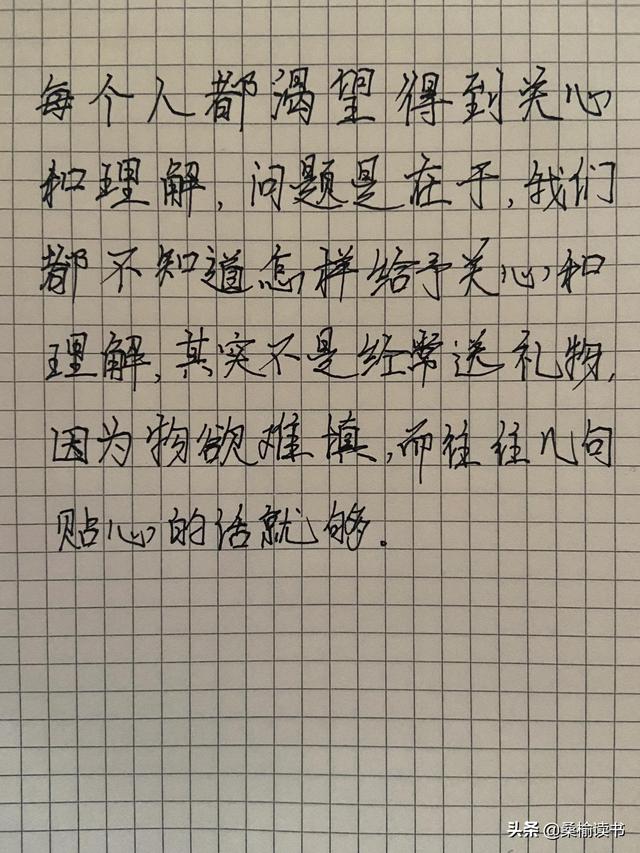 每个人都渴望得到关心
和理解,问题是在于,我们
都不知道怎样给予关心和
理解,其实不是经常送礼物,
因为物欲难填,而往往几句
贴心的话就够.
头条 @桑榆读书